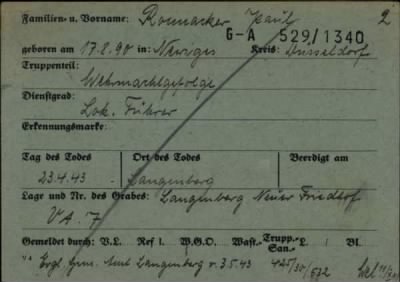 Familien- u. Vorname: Rommacker Paul 2
G-A 529/1340
geboren am 17.8.90 in: Neviges Kreis: Düsseldorf
Truppenteil:
Wehrmachtgefolge
Dienstgrad:
Lok. Führer
Erkennungsmarke:
Tag des Todes Ort des Todes Beerdigt am
23.4.43 - Langenberg
Lage und Nr. des Grabes: Langenberg Neuer Friedhof
V A. 7
Gemeldet durch: V.L. Ref I. W.G.O. Wast.- Trupp. San.- L. / Bl.
Langenberg v. 3.5.43 425/30/532